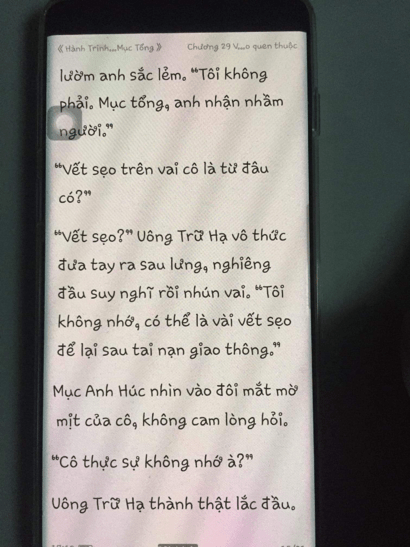 《Hành Trình...Mục Tổng》 Chương 29 V...o quen thuộc
lườm anh sắc lẻm. “Tôi không
phải. Mục tổng, anh nhận nhầm
người.”
“Vết sẹo trên vai cô là từ đâu
có?”
“Vết sẹo?” Uông Trữ Hạ vô thức
đưa tay ra sau lưng, nghiêng
đầu suy nghĩ rồi nhún vai. “Tôi
không nhớ, có thể là vài vết sẹo
để lại sau tai nạn giao thông.”
Mục Anh Húc nhìn vào đôi mắt mờ
mịt của cô, không cam lòng hỏi.
“Cô thực sự không nhớ à?”
Uông Trữ Hạ thành thật lắc đầu.